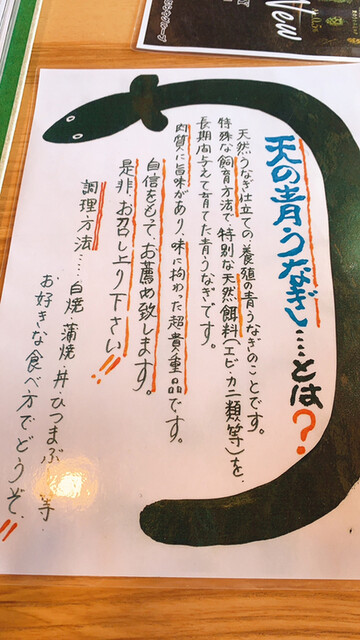 天の青うなぎ……とは?
天然うなぎ仕立ての、養殖の青うなぎのことです。
特殊な飼育方法で、特別な天然餌料(エビ・カニ類等)を、
長期間与えて育てた青うなぎです。
肉質に旨味があり、味に拘わった超貴重品です。
自信をもって、お薦め致します。
是非、お召し上り下さい!!
調理方法……白焼、蒲焼、丼、ひつまぶ 等
お好きな食べ方でどうぞ、!!
New